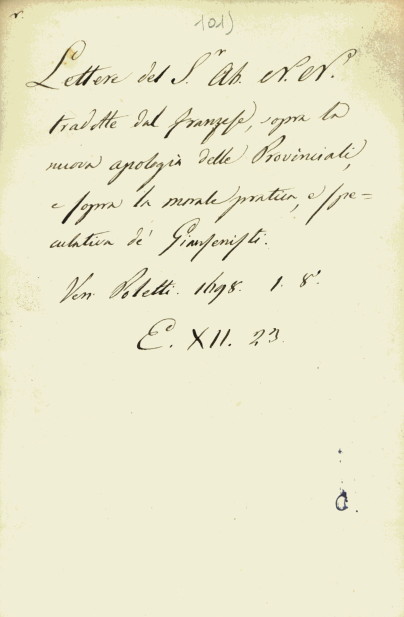 101)
Lettere del S.r Ab. N. N.
tradotte dal franzese, sopra la
nuova apologia delle Provinciali,
e sopra la morale pratica, e spe=
culativa de' Giansenisti.
Ven. Poletti. 1698. 1. 8.º
E. XII. 23.